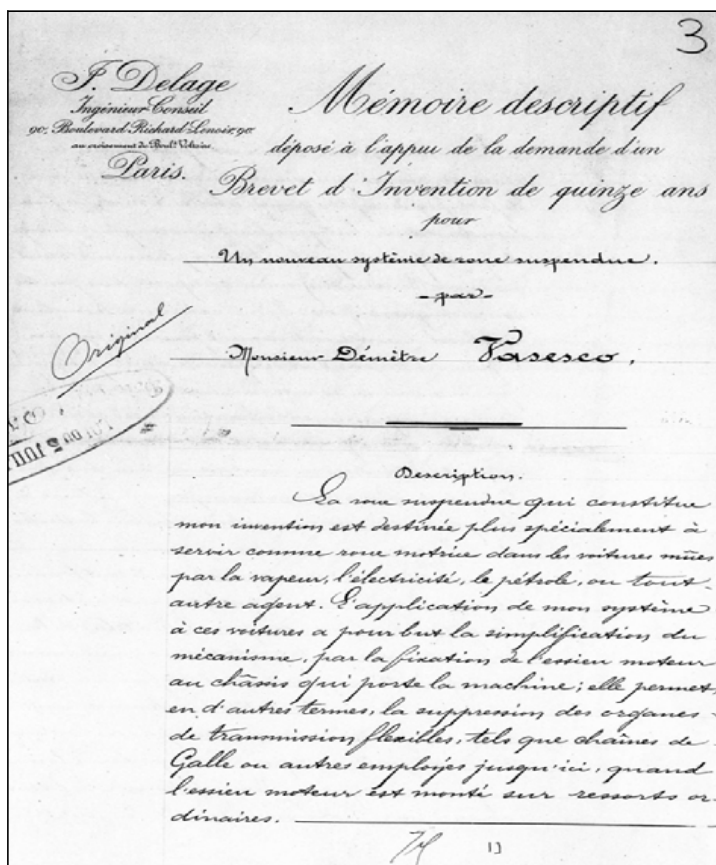 3
J. Delage
Ingénieur-Conseil
90, Boulevard Richard-Lenoir, 90
au croisement du Boulᵗ Voltaire
Paris.
Mémoire descriptif
déposé à l'appui de la demande d'un
Brevet d'Invention de quinze ans
pour
Un nouveau système de roue suspendue.
-par-
Original
Monsieur Démètre Vasesco.
Description.
La roue suspendue qui constitue
mon invention est destinée plus spécialement à
servir comme roue motrice dans les voitures mûes
par la vapeur, l'électricité, le pétrole, ou tout
autre agent. L'application de mon système
à ces voitures a pour but la simplification du
mécanisme, par la fixation de l'essieu moteur
au châssis qui porte la machine; elle permet,
en d'autres termes, la suppression des organes
de transmission flexibles, tels que chaînes de
Galle ou autres employés jusqu'ici, quand
l'essieu moteur est monté sur ressorts or-
dinaires.
13